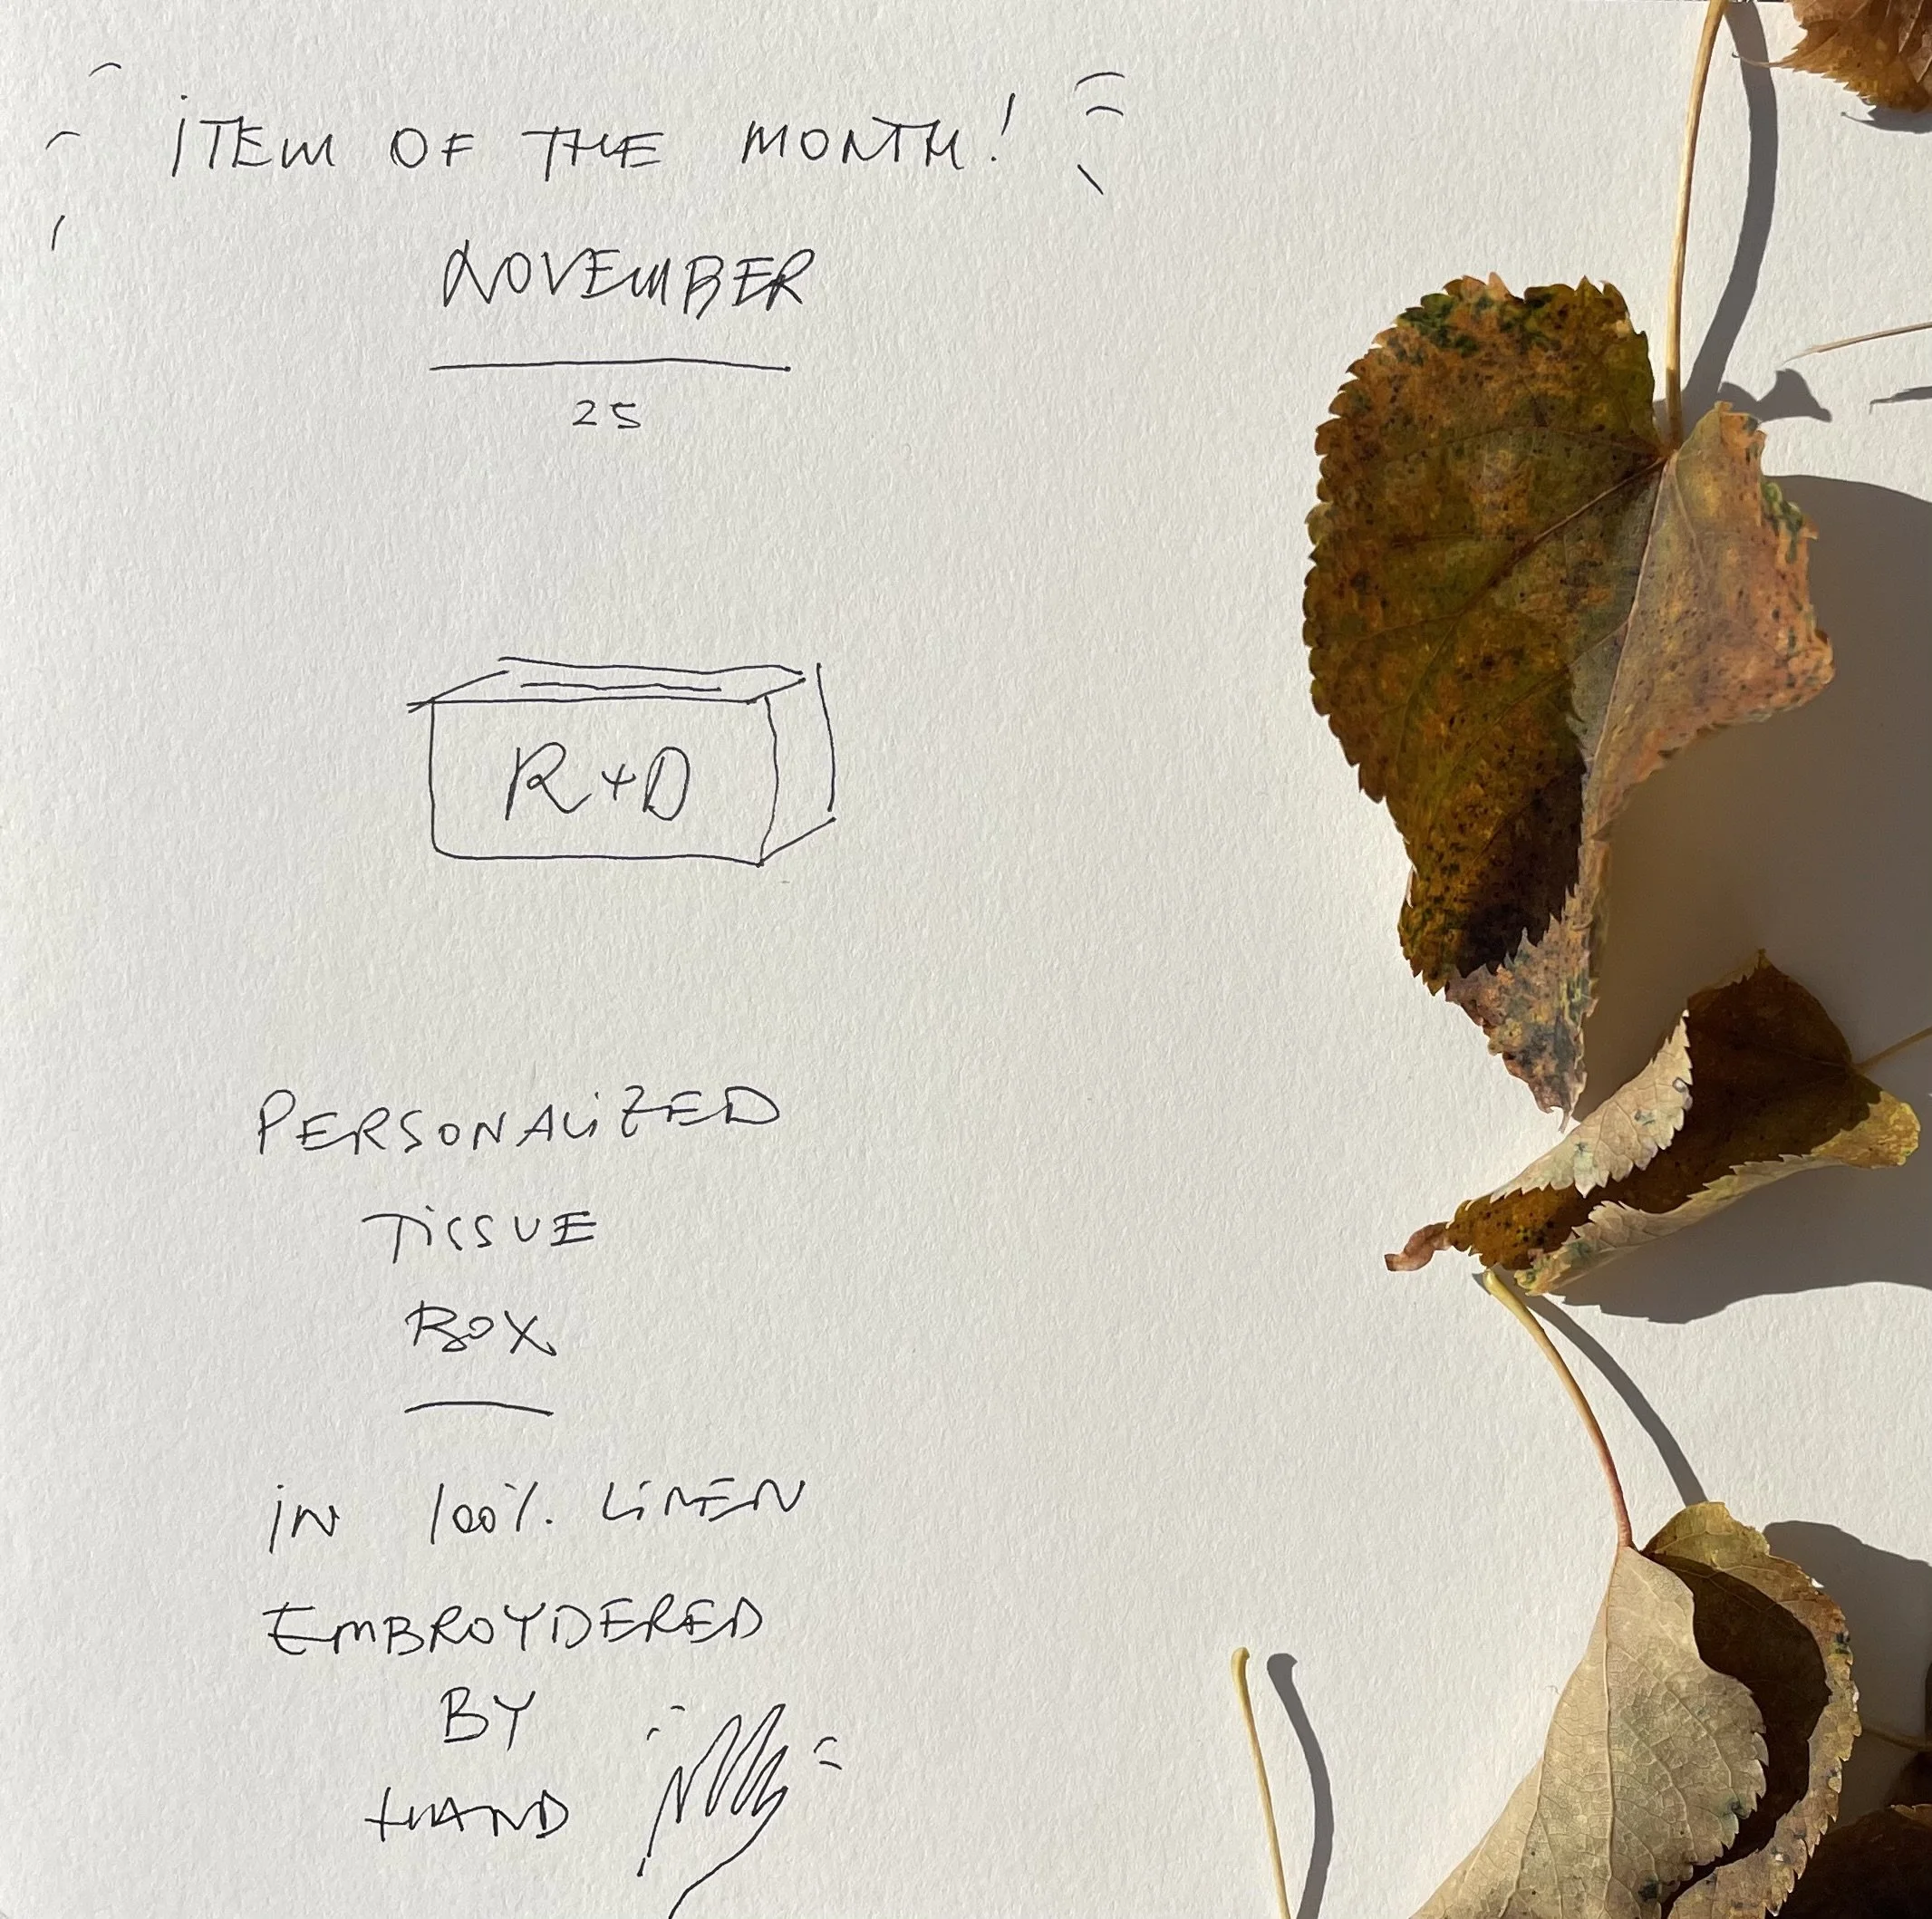 ITEM OF THE MONTH!
NOVEMBER
25
R+D
PERSONALIZED
TISSUE
BOX
IN 100% LINEN
EMBROYDERED
BY
HAND